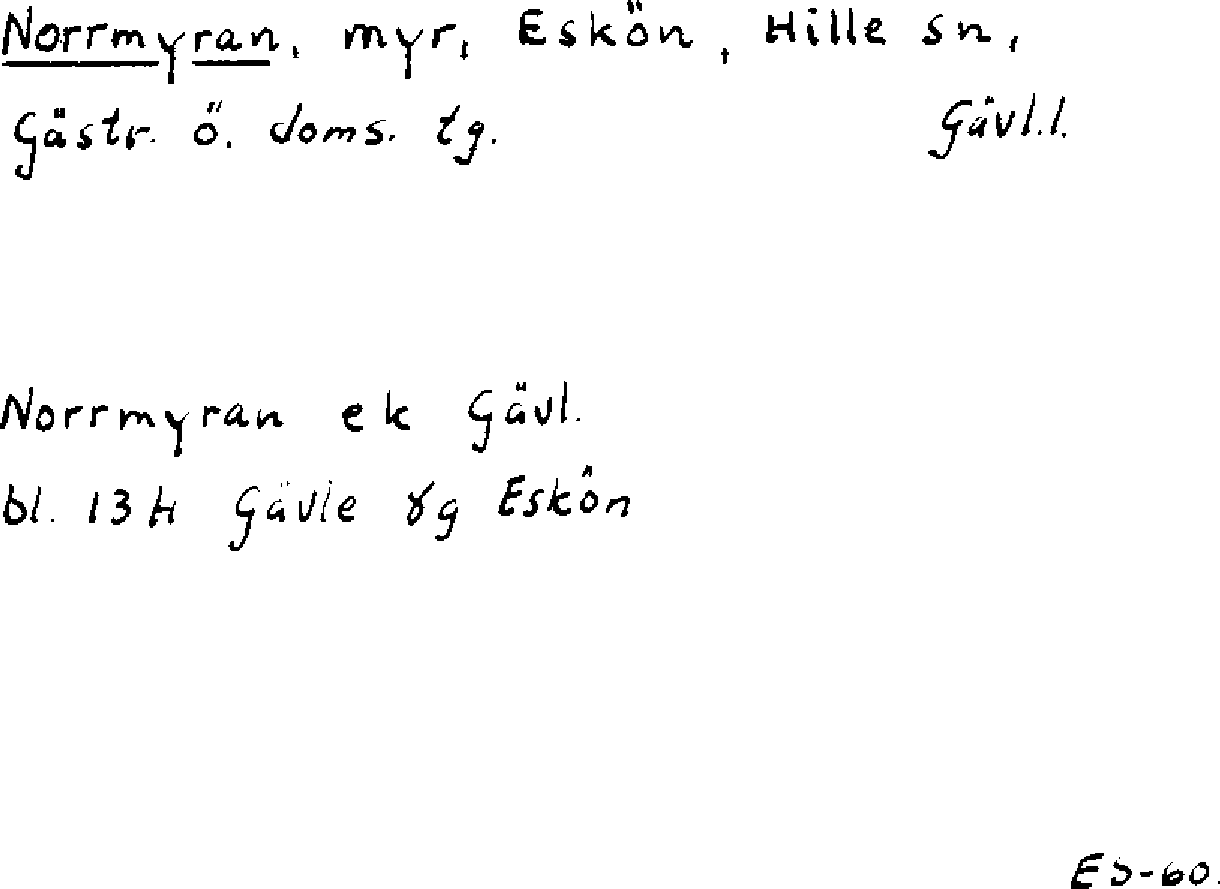 Norrmyran, myr, Eskön, Hille sn,
Gästr. ö. doms. tg. Gävl.l.
Norrmyran ek Gävl.
bl. 13H Gävle 8g Eskön
ES-60.